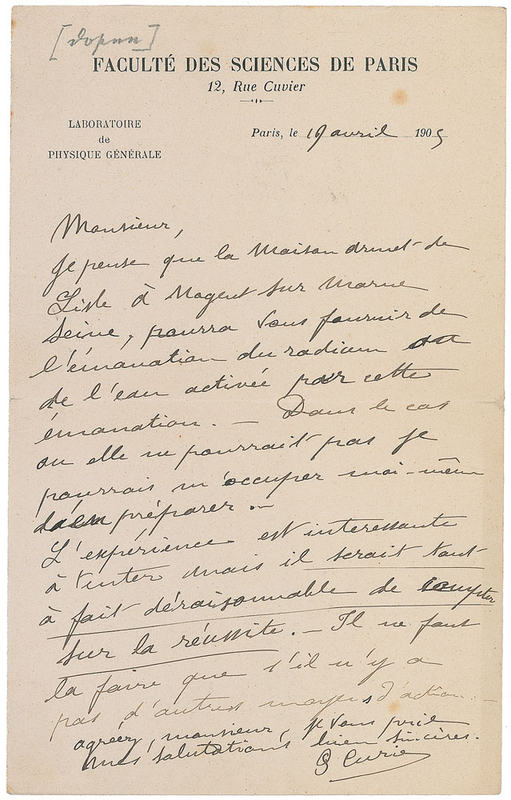 FACULTÉ DES SCIENCES DE PARIS
12, Rue Cuvier
LABORATOIRE
de
PHYSIQUE GÉNÉRALE
Paris, le 19 avril 1905
Monsieur,
Je pense que la Maison Armet de
Lisle à Nogent sur Marne
Seine, pourra vous fournir de
l'émanation du radium ou
de l'eau activée par cette
émanation. — Dans le cas
ou elle ne pourrait pas je
pourrais m'occuper moi-même
d'en préparer. —
L'expérience est interessante
à tenter mais il serait tout
à fait déraisonnable de compter
sur la réussite. — Il ne faut
la faire que s'il n'y a
pas d'autres moyens d'action. —
agréez, monsieur, je vous prie
mes salutations bien sincères.
P Curie